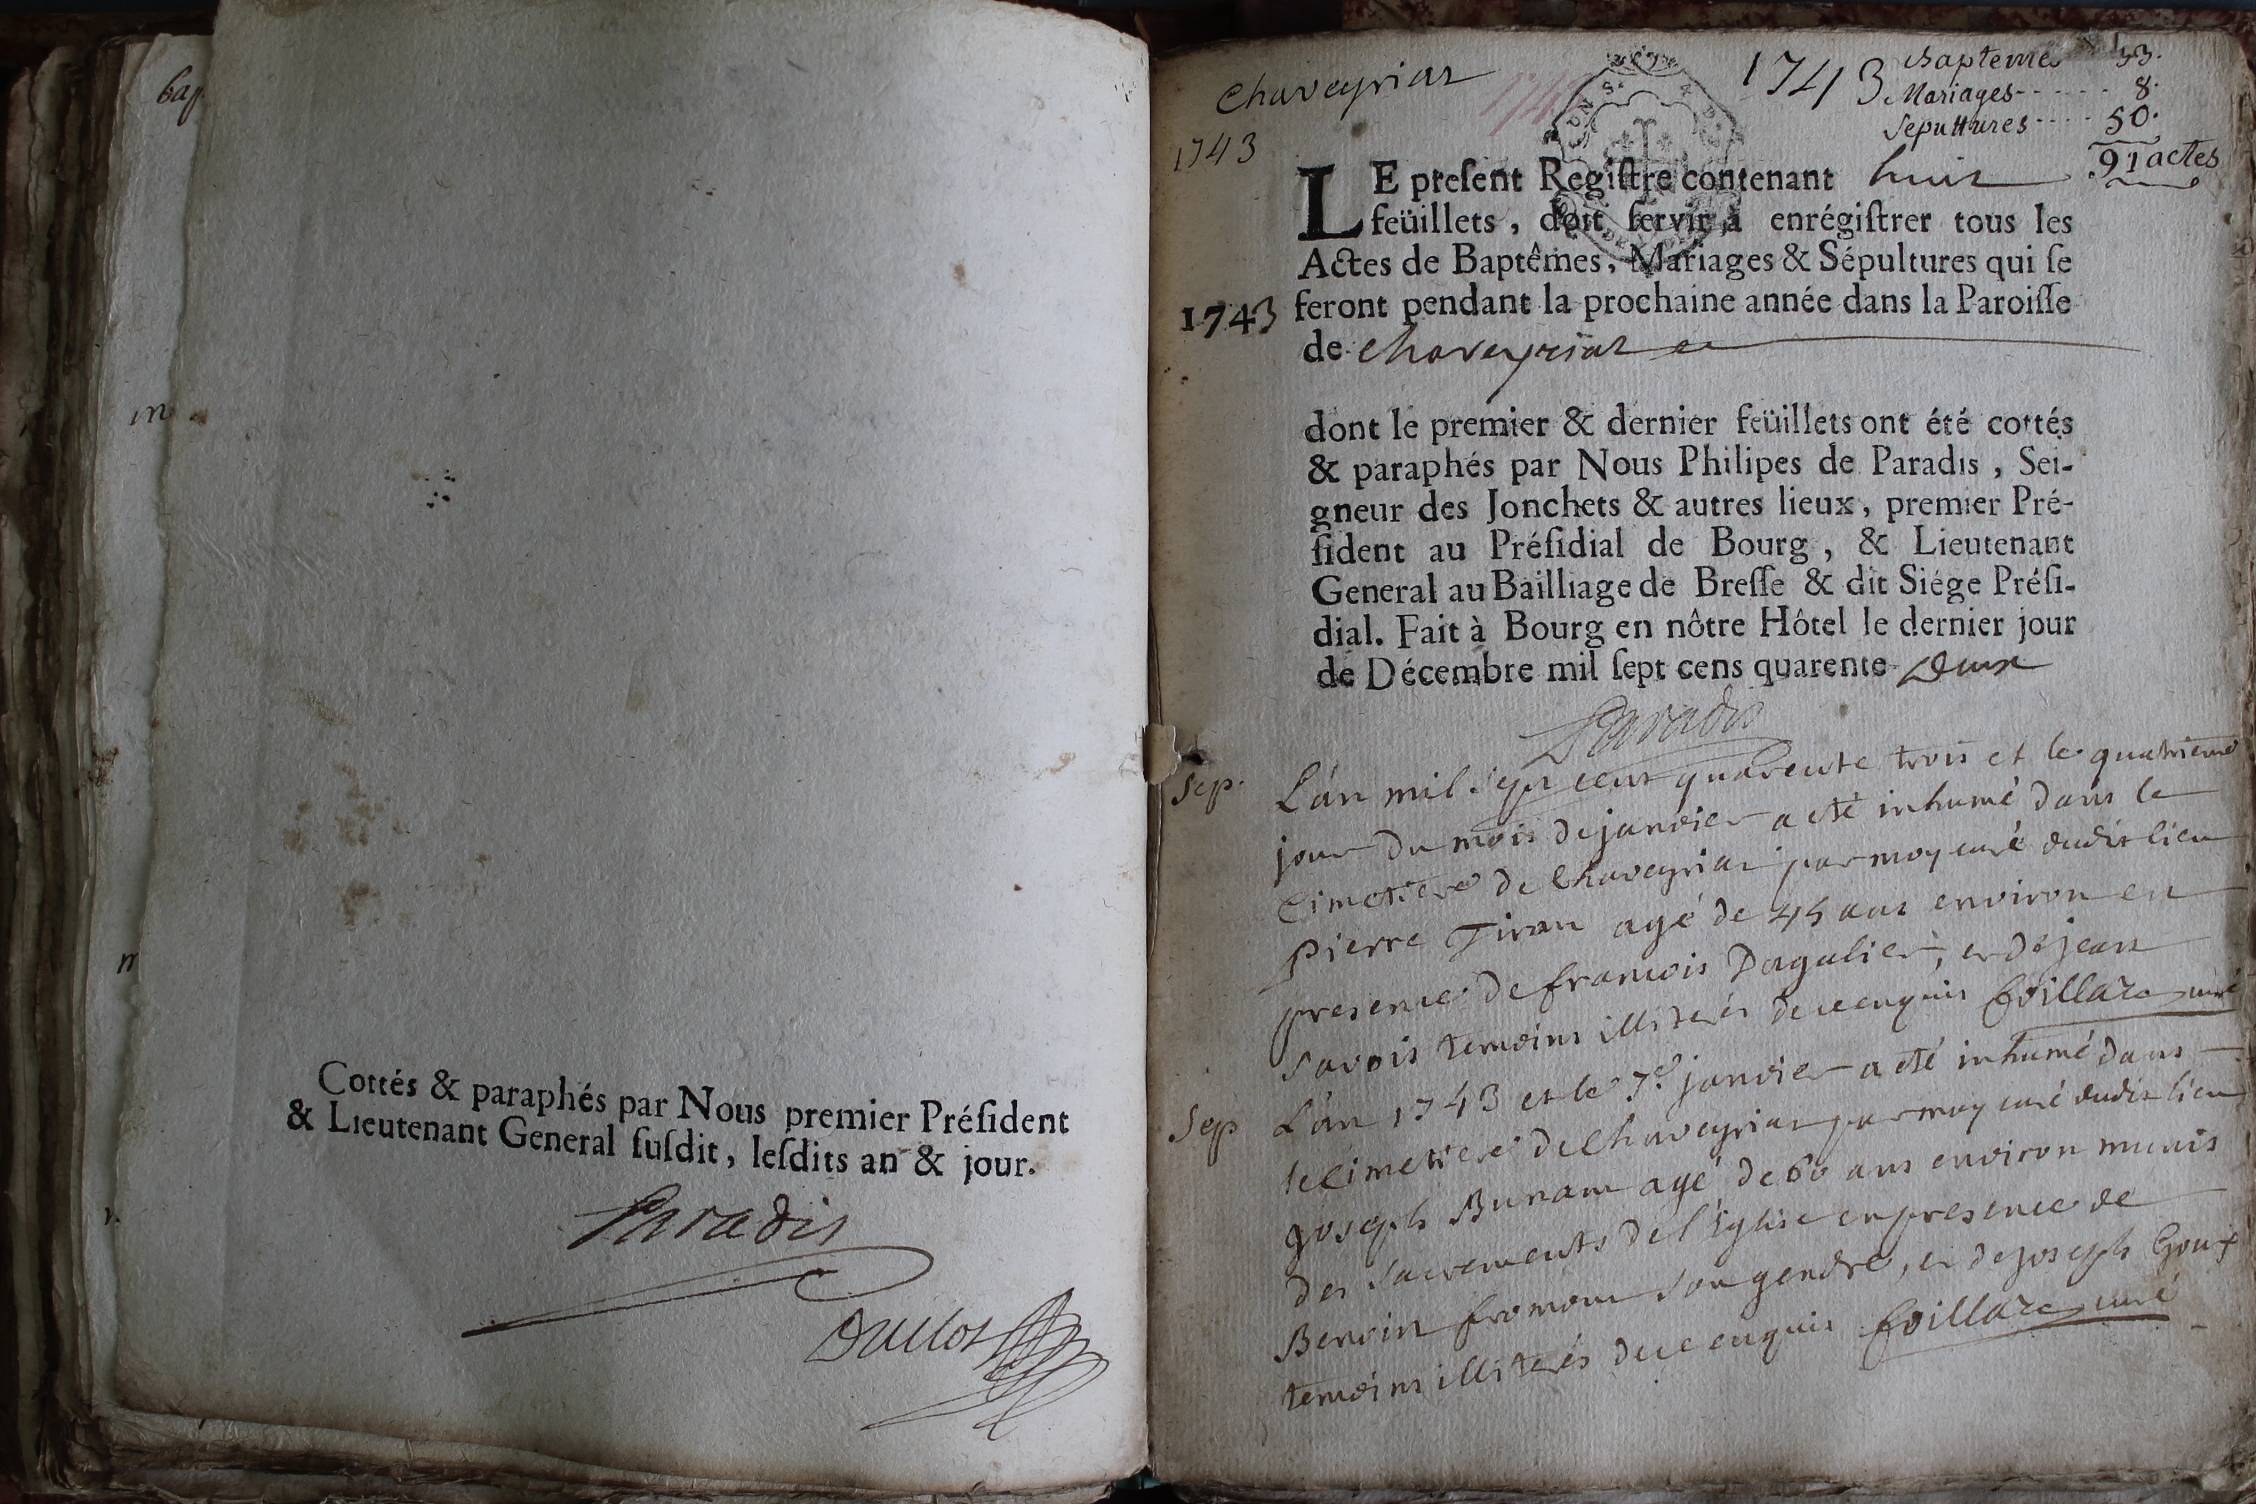 bap.
m
m
Cottés & paraphés par Nous premier Préſident
& Lieutenant General ſuſdit, leſdits an & jour.
Paradis
Duclos
Chaveyriat 1743
Baptemes 33.
Mariages ------ 8.
Sepultures ---- 50.
91 actes
1743
LE preſent Regiſtre contenant huit
feüillets, doit ſervir à enrégiſtrer tous les
Actes de Baptêmes, Mariages & Sépultures qui ſe
1743 feront pendant la prochaine année dans la Paroiſſe
de Chaveyriat
dont le premier & dernier feüillets ont été cottés
& paraphés par Nous Philipes de Paradis, Sei-
gneur des Jonchets & autres lieux, premier Pré-
ſident au Préſidial de Bourg, & Lieutenant
General au Bailliage de Breſſe & dit Siége Préſi-
dial. Fait à Bourg en nôtre Hôtel le dernier jour
de Décembre mil ſept cens quarente Deux
Paradis
Sep. L'an mil sept cent quarente trois et le quatrieme
jour du mois de janvier a eté inhumé dans le
Cimetiere de Chaveyriat par moy curé dudit lieu
pierre Tiran agé de 45 ans environ en
presence de francois Dagalier, et de jean
savois temoins illiterés de ce enquis foillard curé
Sep L'an 1743 et le 7e janvier a eté inhumé dans
le Cimetiere de Chaveyriat par moy curé dudit lieu
joseph agé de 60 ans environ munis
des sacrements de l'Eglise en presence de
Benoit fromont son gendre, et de joseph Goux
temoins illiterés de ce enquis foillard curé